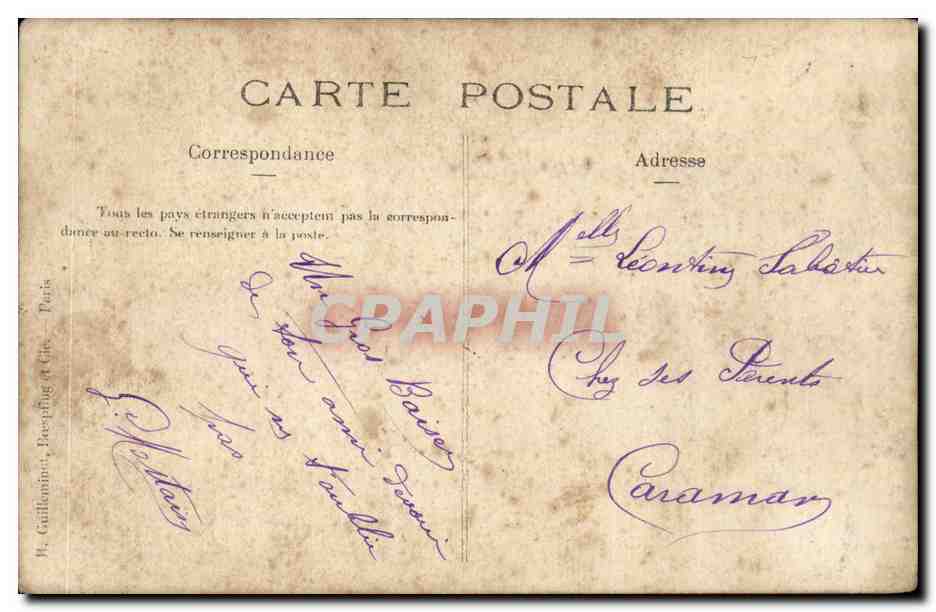 CARTE POSTALE
Correspondance
Tous les pays étrangers n'acceptent pas la correspon-
dance au recto. Se renseigner à la poste.
Un Gros Baiser
de ton ami
qui ne t'oublie
pas
Adresse
Melle Léontine Sabatier
Chez ses Parents
Caraman
R. Guilleminot, Bœspflug et Cie. — Paris
CPAPHIL